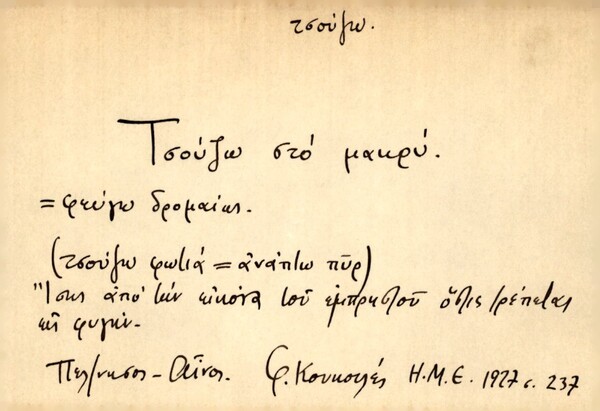 τσούζω.
Τσούζω στό μακρύ.
= φεύγω δρομαίως.
(τσούζω φωτιά = ἀνάπτω πῦρ)
Ἴσως ἀπό τήν εἰκόνα τοῦ ἐμπρηστοῦ ὅστις τρέπεται
εἰς φυγήν.
Πελ/νησος - Αἶνος. Φ. Κουκουλές Η.Μ.Ε. 1927 σ. 237